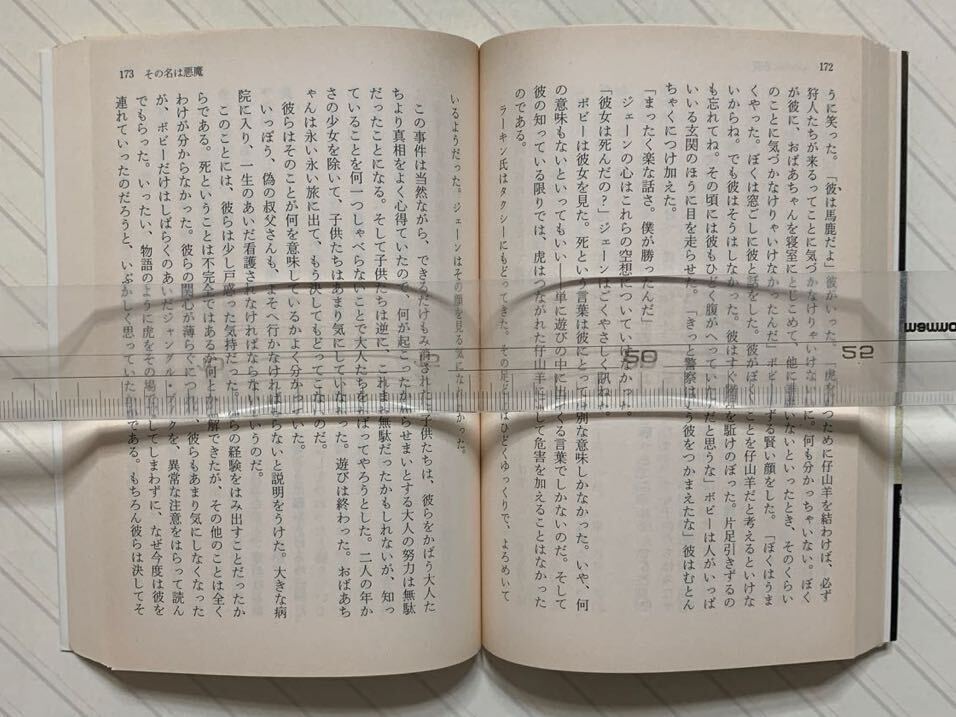 172
うに笑った。「彼は馬鹿だよ」彼がいった。「虎 つために仔山羊を結わけば、必ず
狩人たちが来るってことに気づかなけりゃいけない に。何も分かっちゃいない。ぼく
が彼に、おばあちゃんを寝室にとじこめて、他に誰 いないといったとき、そのくらい
のことに気づかなけりゃいけなかったんだ」ボビー ずる賢い顔をした。「ぼくはうま
くやった。ぼくは窓ごしに彼と話をした。彼がぼく ことを仔山羊だと考えるといけな
いからね。でも彼はそうはしなかった。彼はすぐ階段を駈けのぼった。片足引きずるの
も忘れてね。その頃には彼もひどく腹がへっていたんだと思うな」ボビーは人がいっぱ
いいる玄関のほうに目を走らせた。「きっと警察はもう彼をつかまえたな」彼はむとん
ちゃくにつけ加えた。
「まったく楽な話さ。僕が勝ったんだ」
ジェーンの心はこれらの空想についていけなかった。
「彼女は死んだの？」ジェーンはごくやさしく訊ねた。
ボビーは彼女を見た。死という言葉は彼には別な意味しかなかった。いや、何
の意味もないといってもいい――単に遊びの中に出てくる言葉でしかないのだ。そして
彼の知っている限りでは、虎はつながれた仔山羊に決して危害を加えることはなかった
のである。
ラーキン氏はタクシーにもどってきた。その足どりはひどくゆっくりで、よろめいて
173 その名は悪魔
いるようだった。ジェーンはその顔を見る気になれなかった。
この事件は当然ながら、できるだけもみ消された。子供たちは、彼らをかばう大人た
ちより真相をよく心得ていたので、何が起こったか知らせまいとする大人の努力は無駄
だったことになる。そして子供たちは逆に、これまた無駄だったかもしれないが、知っ
ていることを何一つしゃべらないことで大人たちをかばってやろうとした。二人の年か
さの少女を除いて、子供たちはあまり気にしていなかった。遊びは終わった。おばあち
ゃんは永い永い旅に出て、もう決してもどってこないのだ。
彼らはそのことが何を意味しているかよく分かっていた。
いっぽう、偽の叔父さんも、よそへ行かなければならないと説明をうけた。大きな病
院に入り、一生のあいだ看護されなければならないというのだ。
このことには、彼らは少し戸惑った気持だった。彼らの経験をはみ出すことだったか
らである。死ということは不完全ではあるが何とか理解できたが、その他のことは全く
わけが分からなかった。彼らの関心が薄らぐにつれ、彼らもあまり気にしなくなった
が、ボビーだけはしばらくのあいだ『ジャングル・ブック』を、異常な注意をはらって読ん
でもらった。いったい、物語のように虎をその場で殺してしまわずに、なぜ今度は彼を
連れていったのだろうと、いぶかしく思っていたからである。もちろん彼らは決してそ
50
52